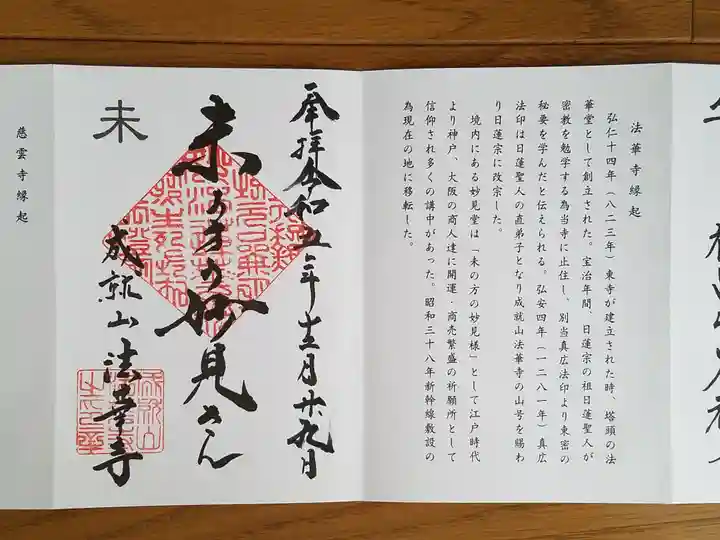 法華寺縁起
弘仁十四年（八二三年）東寺が建立された時、塔頭の法
華堂として創立された。宝治年間、日蓮宗の祖日蓮聖人が
密教を勉学する為当寺に止住し、別当真広法印より東密の
秘要を学んだと伝えられる。弘安四年（一二八一年）真広
法印は日蓮聖人の直弟子となり成就山法華寺の山号を賜わ
り日蓮宗に改宗した。
境内にある妙見堂は「未の方の妙見様」として江戸時代
より神戸、大阪の商人達に開運・商売繁盛の祈願所として
信仰され多くの講中があった。昭和三十八年新幹線敷設の
為現在の地に移転した。
奉拝令和五年十二月廿九日
未の方の妙見さん
成就山法華寺
未
慈雲寺縁起